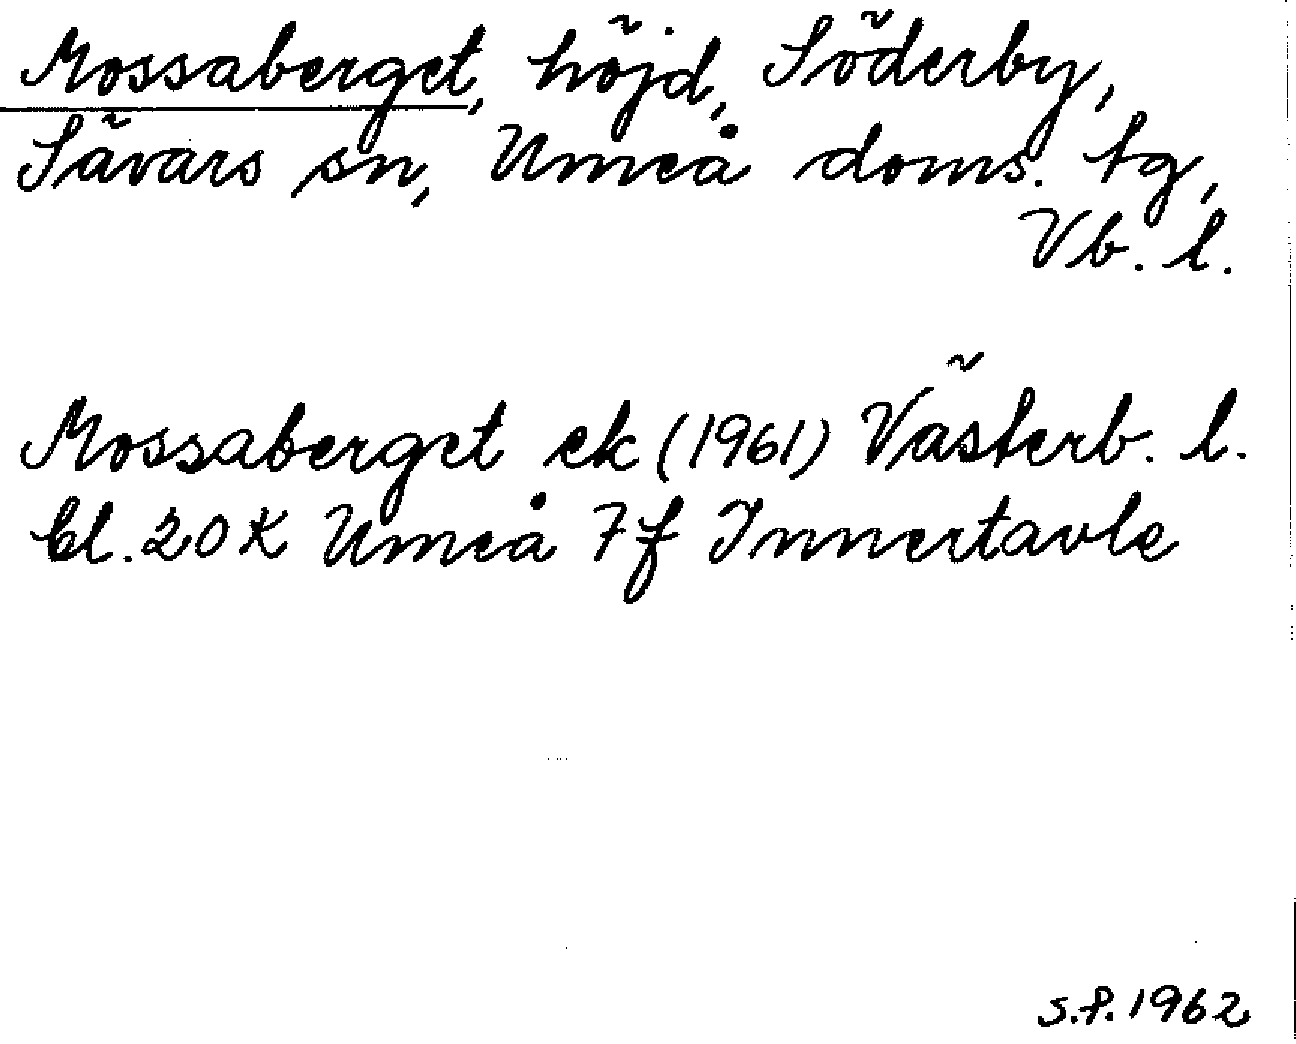 Mossaberget, höjd, Söderby,
Sävars sn, Umeå doms. tg,
Vb. l.
Mossaberget ek (1961) Västerb. l.
bl. 20 K Umeå 7f Innertavle
S.P. 1962